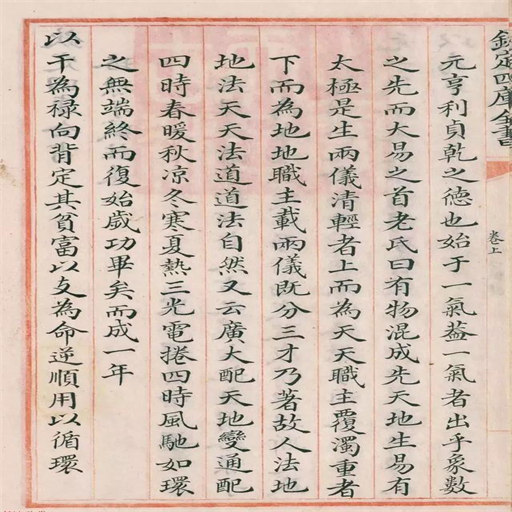 欽定四庫全書
卷上
元亨利貞乾之德也始于一氣蓋一氣者出乎象數
之先而大易之首老氏曰有物混成先天地生易有
太極是生兩儀清輕者上而為天天職主覆濁重者
下而為地地職主載兩儀既分三才乃著故人法地
地法天天法道道法自然又云廣大配天地變通配
四時春暖秋凉冬寒夏熱三光電捲四時風馳如環
之無端終而復始歲功畢矣而成一年
以干為祿向背定其貧富以支為命逆順用以循環